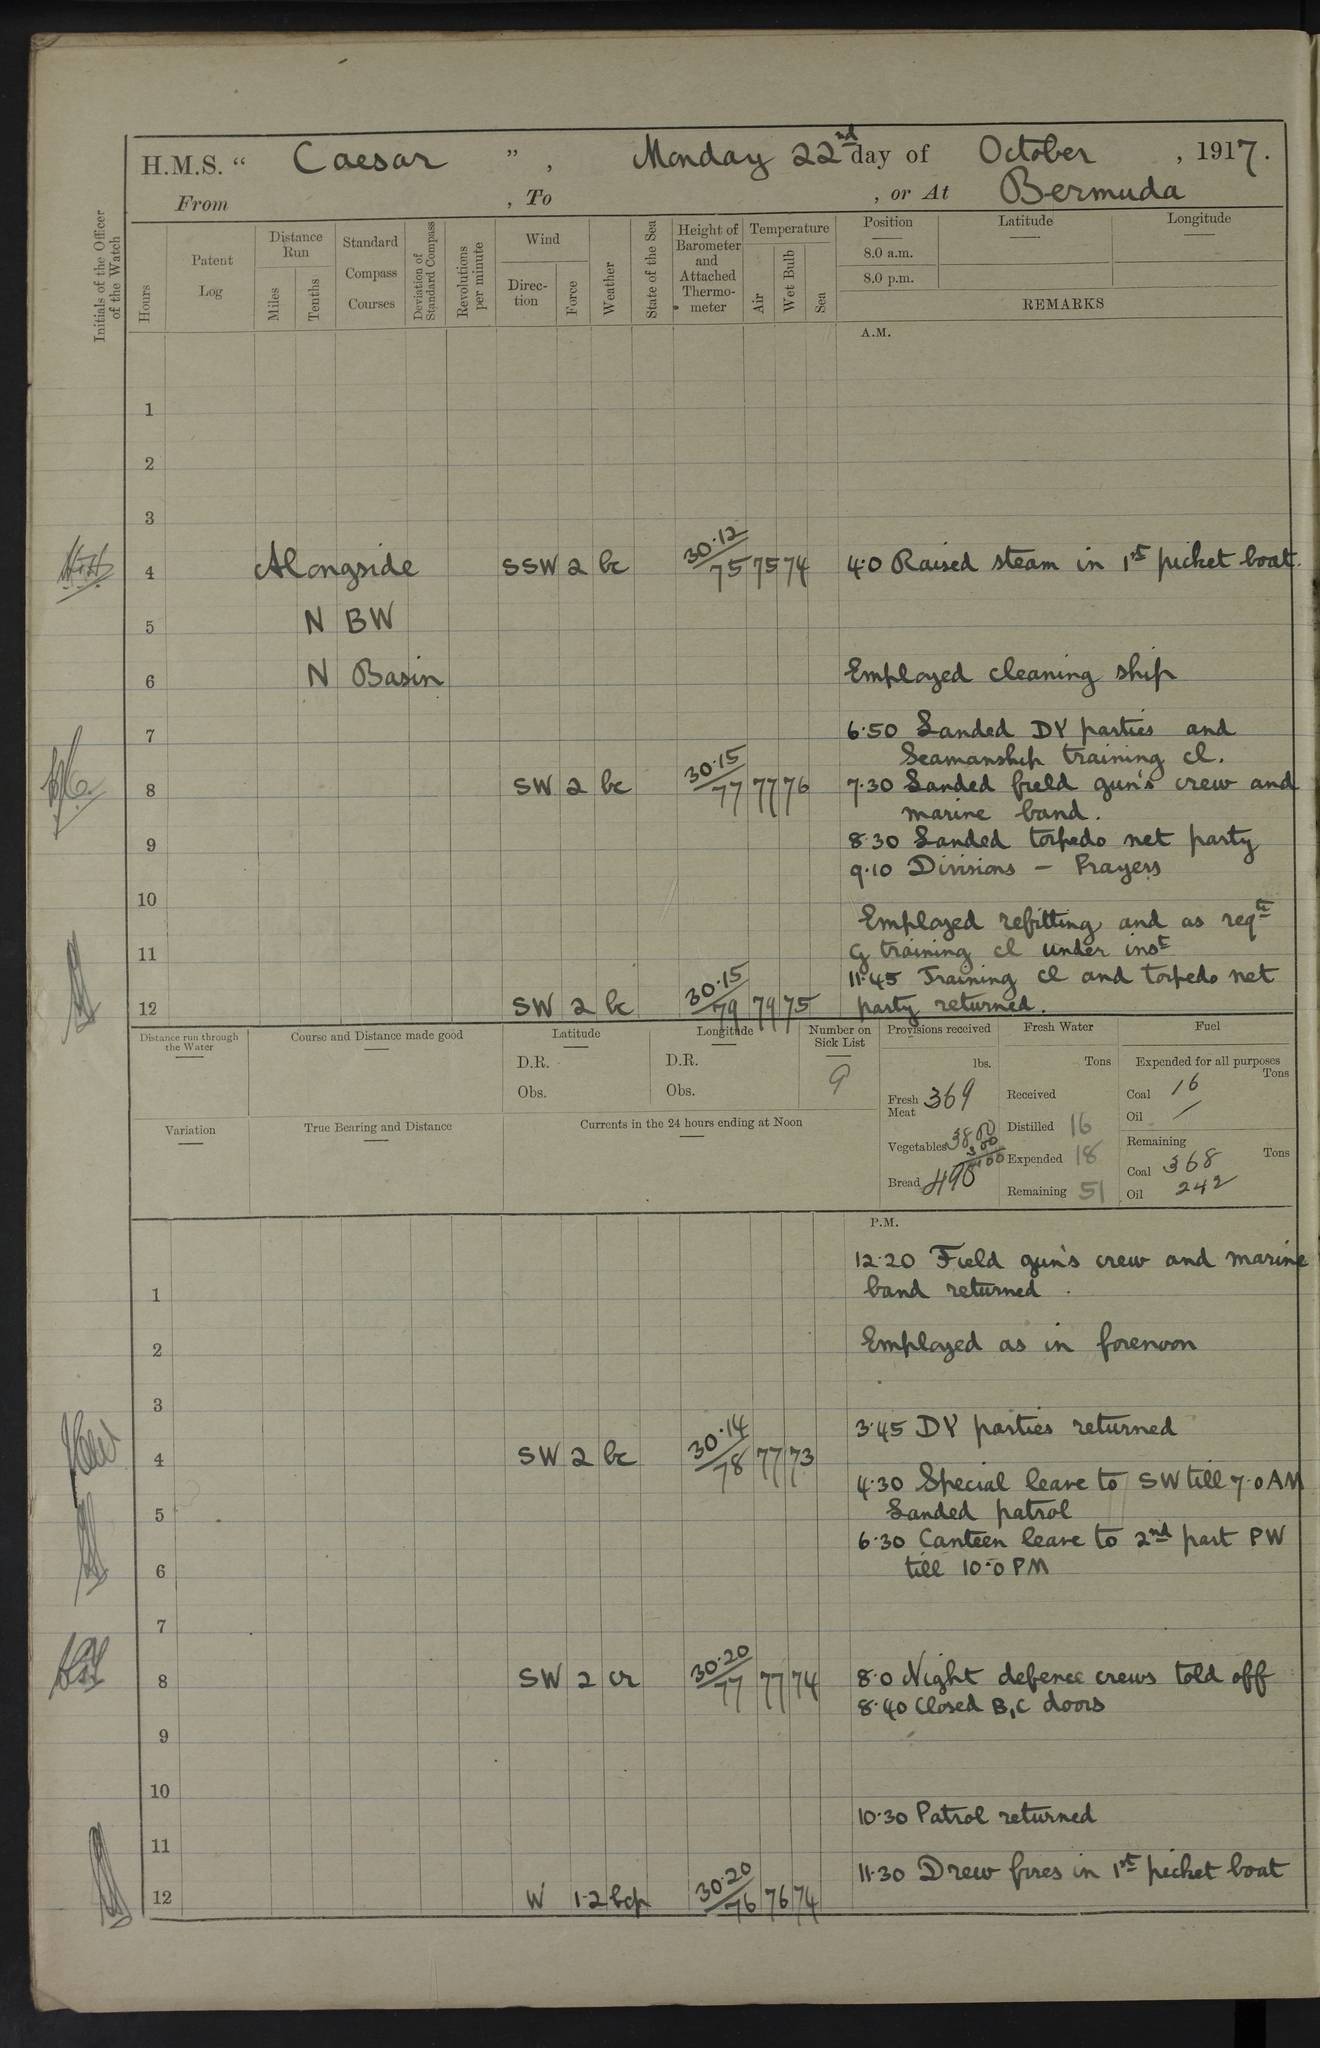 H.M.S. “ Caesar ” , Monday 22nd day of October , 1917.
From , To , or At Bermuda
Initials of the Officer of the Watch
Hours
Patent Log
Distance Run
Miles
Tenths
Standard Compass Courses
Deviation of Standard Compass
Revolutions per minute
Wind
Direc- tion
Force
Weather
State of the Sea
Height of Barometer and Attached Thermo- meter
Temperature
Air
Wet Bulb
Sea
Position
Latitude
Longitude
8.0 a.m.
8.0 p.m.
REMARKS
A.M.
1
2
3
4 Alongside SSW 2 bc 30.12/75 75 74 4.0 Raised steam in 1st picket boat.
5 N BW
6 N Basin Employed cleaning ship
7 6.50 Landed DY parties and
Seamanship training cl.
8 SW 2 bc 30.15/77 77 76 7.30 Landed field gun's crew and
marine band.
9 8.30 Landed torpedo net party
9.10 Divisions – Prayers
10
Employed refitting and as reqte
11 G training cl under inst
11.45 Training cl and torpedo net
12 SW 2 bc 30.15/79 79 75 party returned.
Distance run through the Water
Course and Distance made good
Latitude
D.R.
Obs.
Longitude
D.R.
Obs.
Number on Sick List
9
Provisions received
lbs.
Fresh Meat 369
Vegetables 3800
300
Bread 490
Fresh Water
Tons
Received
Distilled 16
Expended 18
Remaining 51
Fuel
Expended for all purposes
Tons
Coal 16
Oil /
Remaining
Tons
Coal 368
Oil 242
Variation
True Bearing and Distance
Currents in the 24 hours ending at Noon
P.M.
12.20 Field gun's crew and marine
1 band returned.
2 Employed as in forenoon
3
3.45 DY parties returned
4 SW 2 bc 30.14/78 77 73
4.30 Special leave to SW till 7.0 AM
5 Landed patrol
6.30 Canteen leave to 2nd part PW
6 till 10.0 PM
7
8 SW 2 cr 30.20/77 77 74 8.0 Night defence crews told off
8.40 Closed B, C doors
9
10
10.30 Patrol returned
11
11.30 Drew fires in 1st picket boat
12 W 1.2 bcp 30.20/76 76 74